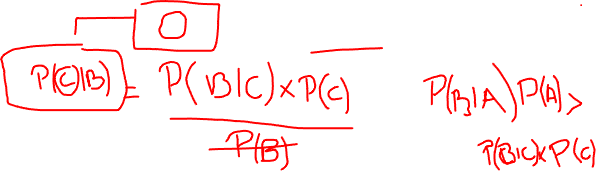 O
P(C|B) = P(B|C)×P(C)
P(B)
P(B|A) P(A) >
P(B|C)×P(C)